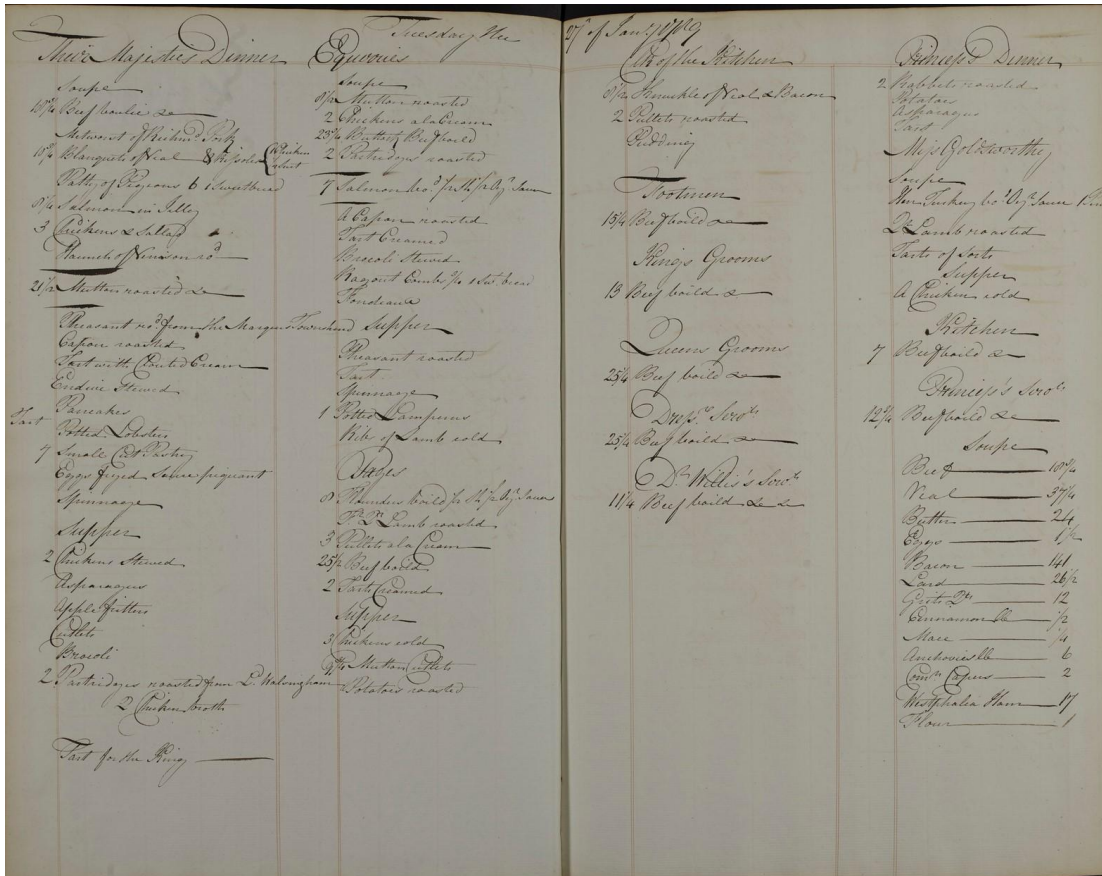 Tuesday the 27th of Jany 1789
Their Majesties Dinner
Soupe
18 3/4 Beef boulie &c
Metworst of Kiskind Pork
18 3/4 Blanquets of Veal & Rissoles Chicken
Patty of Pigeons 6 1 Sweetbread
Salmon in Jelley
3 Chickens & Sallad
Haunch of Venison rd
21 1/2 Mutton roasted &c
Pheasant rd from the Marquis Townshend
Capon roasted
Tart with Clouted Cream
Endive Stewed
Pancakes
Tart
Potted Lobsters
7 Small Cut Pastry
Eggs fryed Sauce piquant
Spinnage
Supper
2 Chickens Stewed
Asparagus
Apple fritters
Cutlets
Brocoli
2 Partridges roasted from Ld Walsingham
2 Chicken broth
Tart for the King
Equerries
Soupe
8 1/2 Mutton roasted
2 Chickens a la Cream
Buttock Beef boild
2 Partridges roasted
7 Salmon
A Capon roasted
Tart Creamed
Brocoli Stewed
Ragout Combs
Fondeaux
Supper
Pheasant roasted
Tart
Spinnage
1 Potted Lamperns
Ribs of Lamb cold
Pages
8 Flounders boild
Fr Qr Lamb roasted
3 Pullets a la Cream
25 1/2 Beef boild
2 Tarts Creamed
Supper
3 Chickens cold
Mutton Cutlets
Potatoes roasted
Clk of the Kitchen
8 1/2 Knuckle of Veal & Bacon
2 Pullets roasted
Pudding
Footmen
15 1/4 Beef boild &c
Kings Grooms
13 Beef boild &c
Queens Grooms
25 1/4 Beef boild &c
Servts
25 1/4 Beef boild &c
Dr Willis's Servts
11 1/4 Beef boild &c &c
Princess's Dinner
2 Rabbets roasted
Potatoes
Asparagus
Tart
Miss Goldsworthy
Soupe
Hen Turkey
Qr Lamb roasted
Tarts of Sorts
Supper
A Chicken cold
Kitchen
7 Beef boild &c
Princess's Servts
12 3/4 Beef boild &c
Soupe
Beef 18 3/4
Veal 37 1/4
Butter 24
Eggs 1 1/2
Bacon 141
Lard 26 1/2
Grits Qts 12
Cinnamon lb 1/2
Mace 1/4
Anchovies lb 6
Comn Capers 2
Westphalia Ham 17
Flour 1